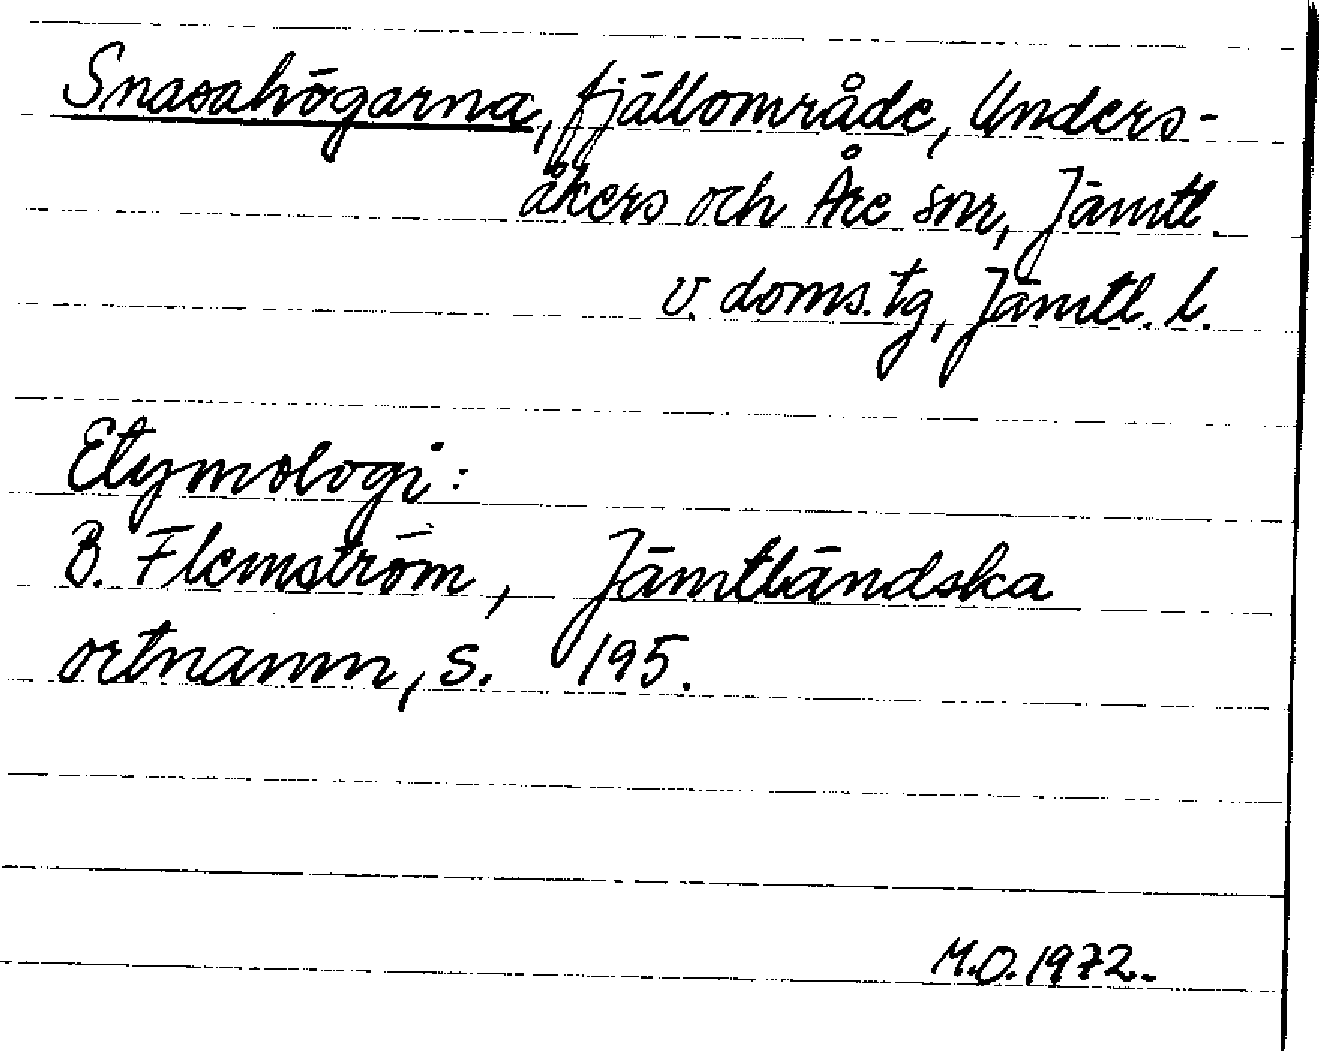 Snasahögarna, fjällområde, Unders-
åkers och Åre snr, Jämtl.
v. doms. tg, Jämtl. l.
Etymologi:
B. Flemström, Jämtländska
ortnamn, s. 195.
M.O. 1972.